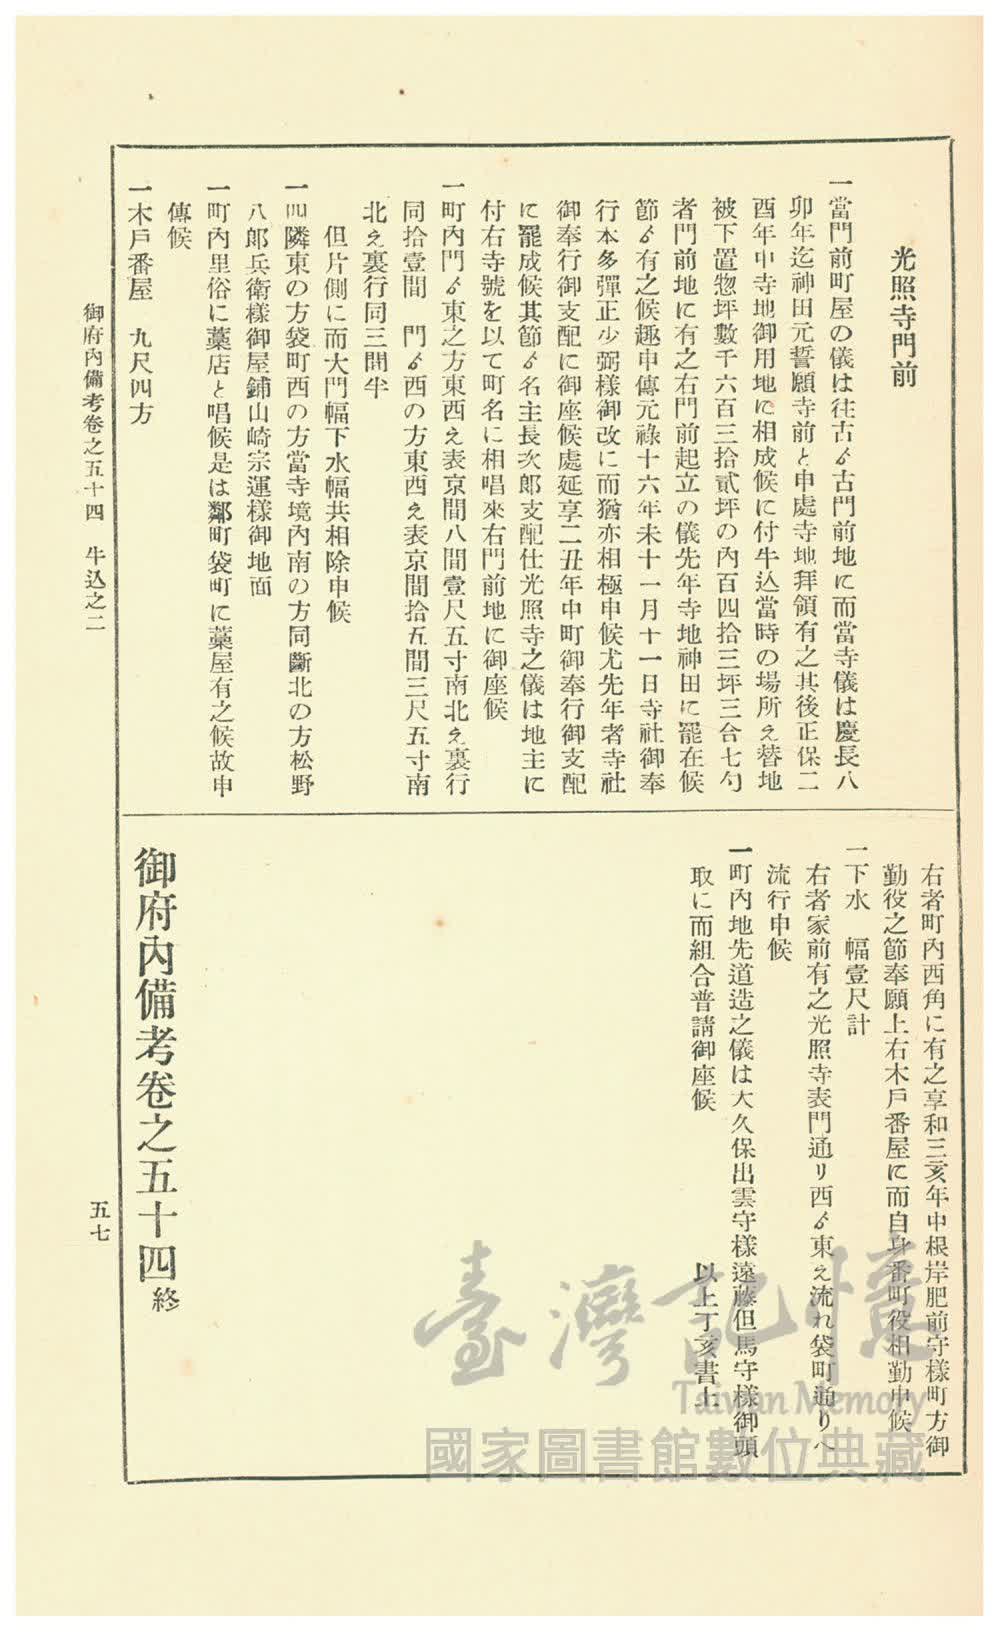 光照寺門前
一當門前町屋の儀は往古ゟ古門前地に而當寺儀は慶長八
卯年迄神田元誓願寺前と申處寺地拜領有之其後正保二
酉年中寺地御用地に相成候に付牛込當時の場所え替地
被下置惣坪數千六百三拾貳坪の內百四拾三坪三合七勺
者門前地に有之右門前起立の儀先年寺地神田に罷在候
節ゟ有之候趣申傳元祿十六年未十一月十一日寺社御奉
行本多彈正少弼樣御改に而猶亦相極申候尤先年者寺社
御奉行御支配に御座候處延享二丑年中町御奉行御支配
に罷成候其節ゟ名主長次郎支配仕光照寺之儀は地主に
付右寺號を以て町名に相唱來右門前地に御座候
一町內門ゟ東之方東西え表京間八間壹尺五寸南北え裏行
同拾壹間　門ゟ西の方東西え表京間拾五間三尺五寸南
北え裏行同三間半
但片側に而大門幅下水幅共相除申候
一四隣東の方袋町西の方當寺境內南の方同斷北の方松野
八郎兵衛樣御屋鋪山崎宗運樣御地面
一町內里俗に藁店と唱候是は鄰町袋町に藁屋有之候故申
傳候
一木戶番屋　九尺四方
右者町內西角に有之享和三亥年中根岸肥前守樣町方御
勤役之節奉願上右木戶番屋に而自身番町役相勤申候
一下水　幅壹尺計
右者家前有之光照寺表門通り西ゟ東え流れ袋町通りへ
流行申候
一町內地先道造之儀は大久保出雲守樣遠藤但馬守樣御頭
取に而組合普請御座候
以上丁亥書上
御府內備考卷之五十四終
御府內備考卷之五十四　牛込之二
五七
臺灣記憶
Taiwan Memory
國家圖書館數位典藏